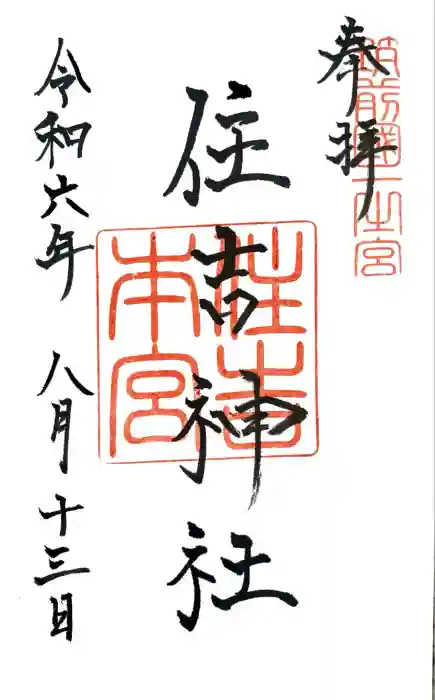 奉拝
筑前國一之宮
住吉神社
住吉本宮
令和六年 八月十三日